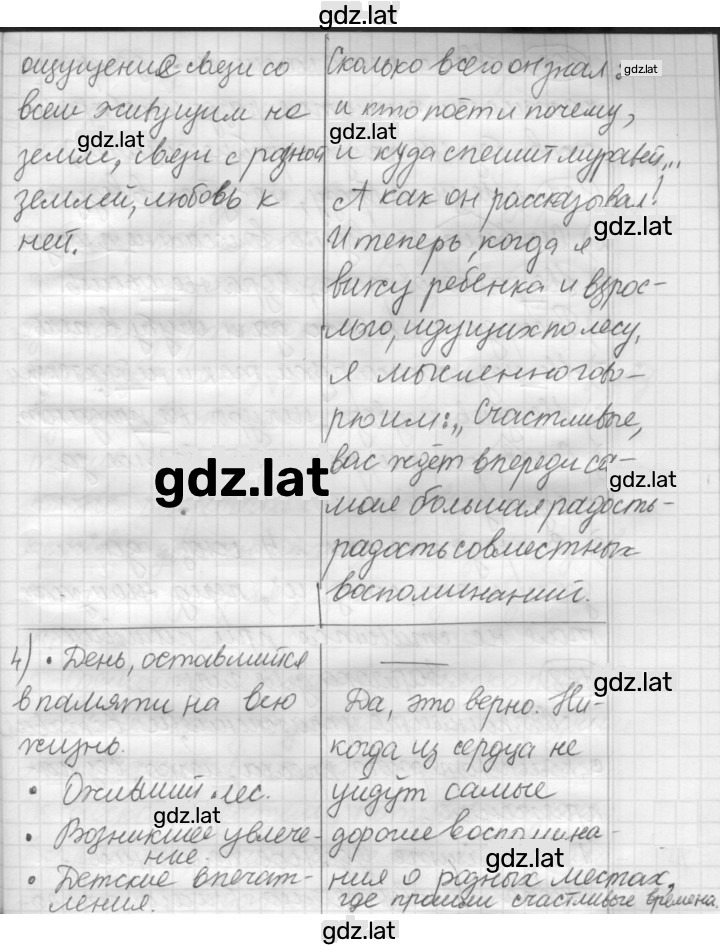 gdz.lat
ощущения связи со
всем живущим на
земле, связи с родной
землей, любовь к
ней.
Сколько всего он знал:
и кто поёт и почему,
и куда спешит муравей...
А как он рассказывал!
И теперь, когда я
вижу ребёнка и взрос-
лого, идущих по лесу,
я мысленно гово-
рю им: „Счастливые,
вас ждёт впереди са-
мая большая радость-
радость совместных
воспоминаний.
4) • День, оставшийся
в памяти на всю
жизнь.
• Оживший лес.
• Возникшее увлече-
ние.
• Детские впечат-
ления.
Да, это верно. Ни-
когда из сердца не
уйдут самые
дорогие воспомина-
ния о родных местах,
где прошли счастливые времена.
gdz.lat
gdz.lat
gdz.lat
gdz.lat
gdz.lat
gdz.lat
gdz.lat
gdz.lat
gdz.lat
gdz.lat